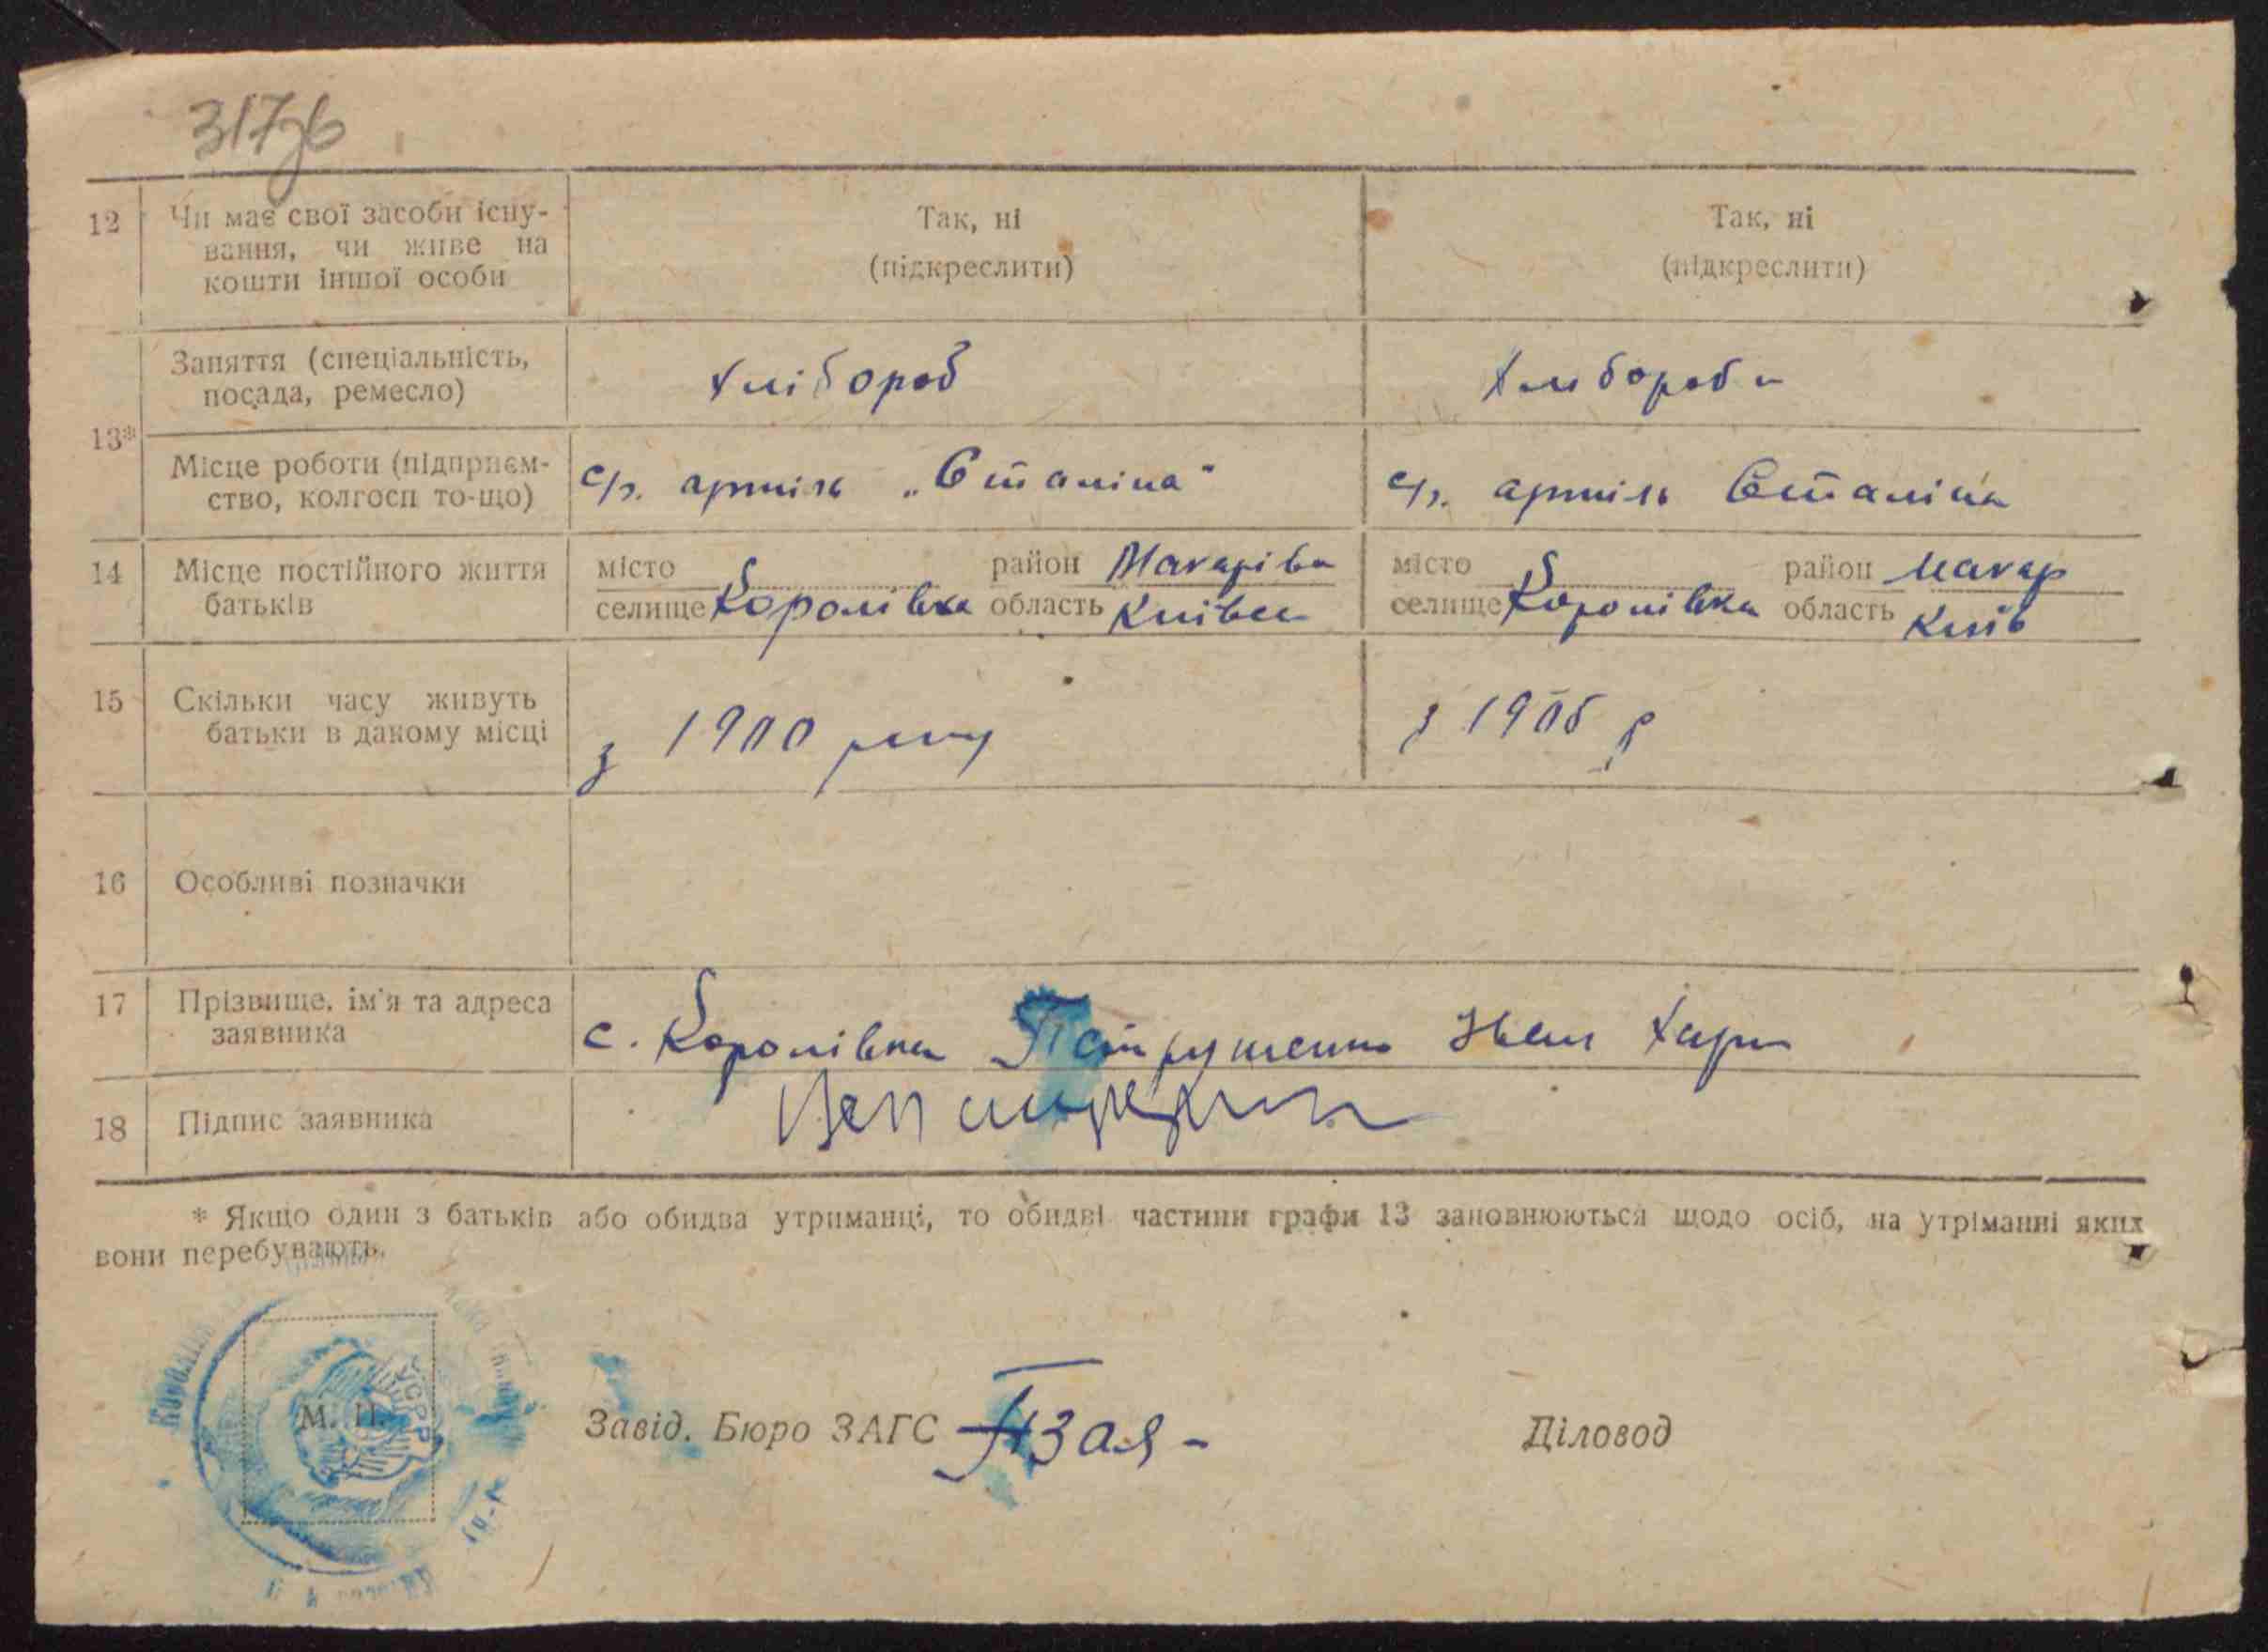 12 Чи має свої засоби існу-
вання, чи живе на
кошти іншої особи
Так, ні
(підкреслити)
Так, ні
(підкреслити)
13*
Заняття (спеціальність,
посада, ремесло)
Хлібороб
Хлібороб
Місце роботи (підприєм-
ство, колгосп то-що)
с/г. артіль „Сталіна"
с/г. артіль Сталіна
14 Місце постійного життя
батьків
місто район Макарівсь
селище Королівка область Київсь
місто район Макар
селище Королівка область Київ
15 Скільки часу живуть
батьки в даному місці
з 1900 року
з 1905 р
16 Особливі позначки
17 Прізвище, ім'я та адреса
заявника
с. Королівка Петрушенко Іван Хари
18 Підпис заявника
* Якщо один з батьків або обидва утриманці, то обидві частини графи 13 заповнюються щодо осіб, на утріманні яких
вони перебувають.
УСРР
М. П.
Завід. Бюро ЗАГС
Діловод